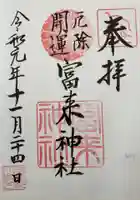 奉拝
厄除
開運
富来神社
令和元年十一月二十四日